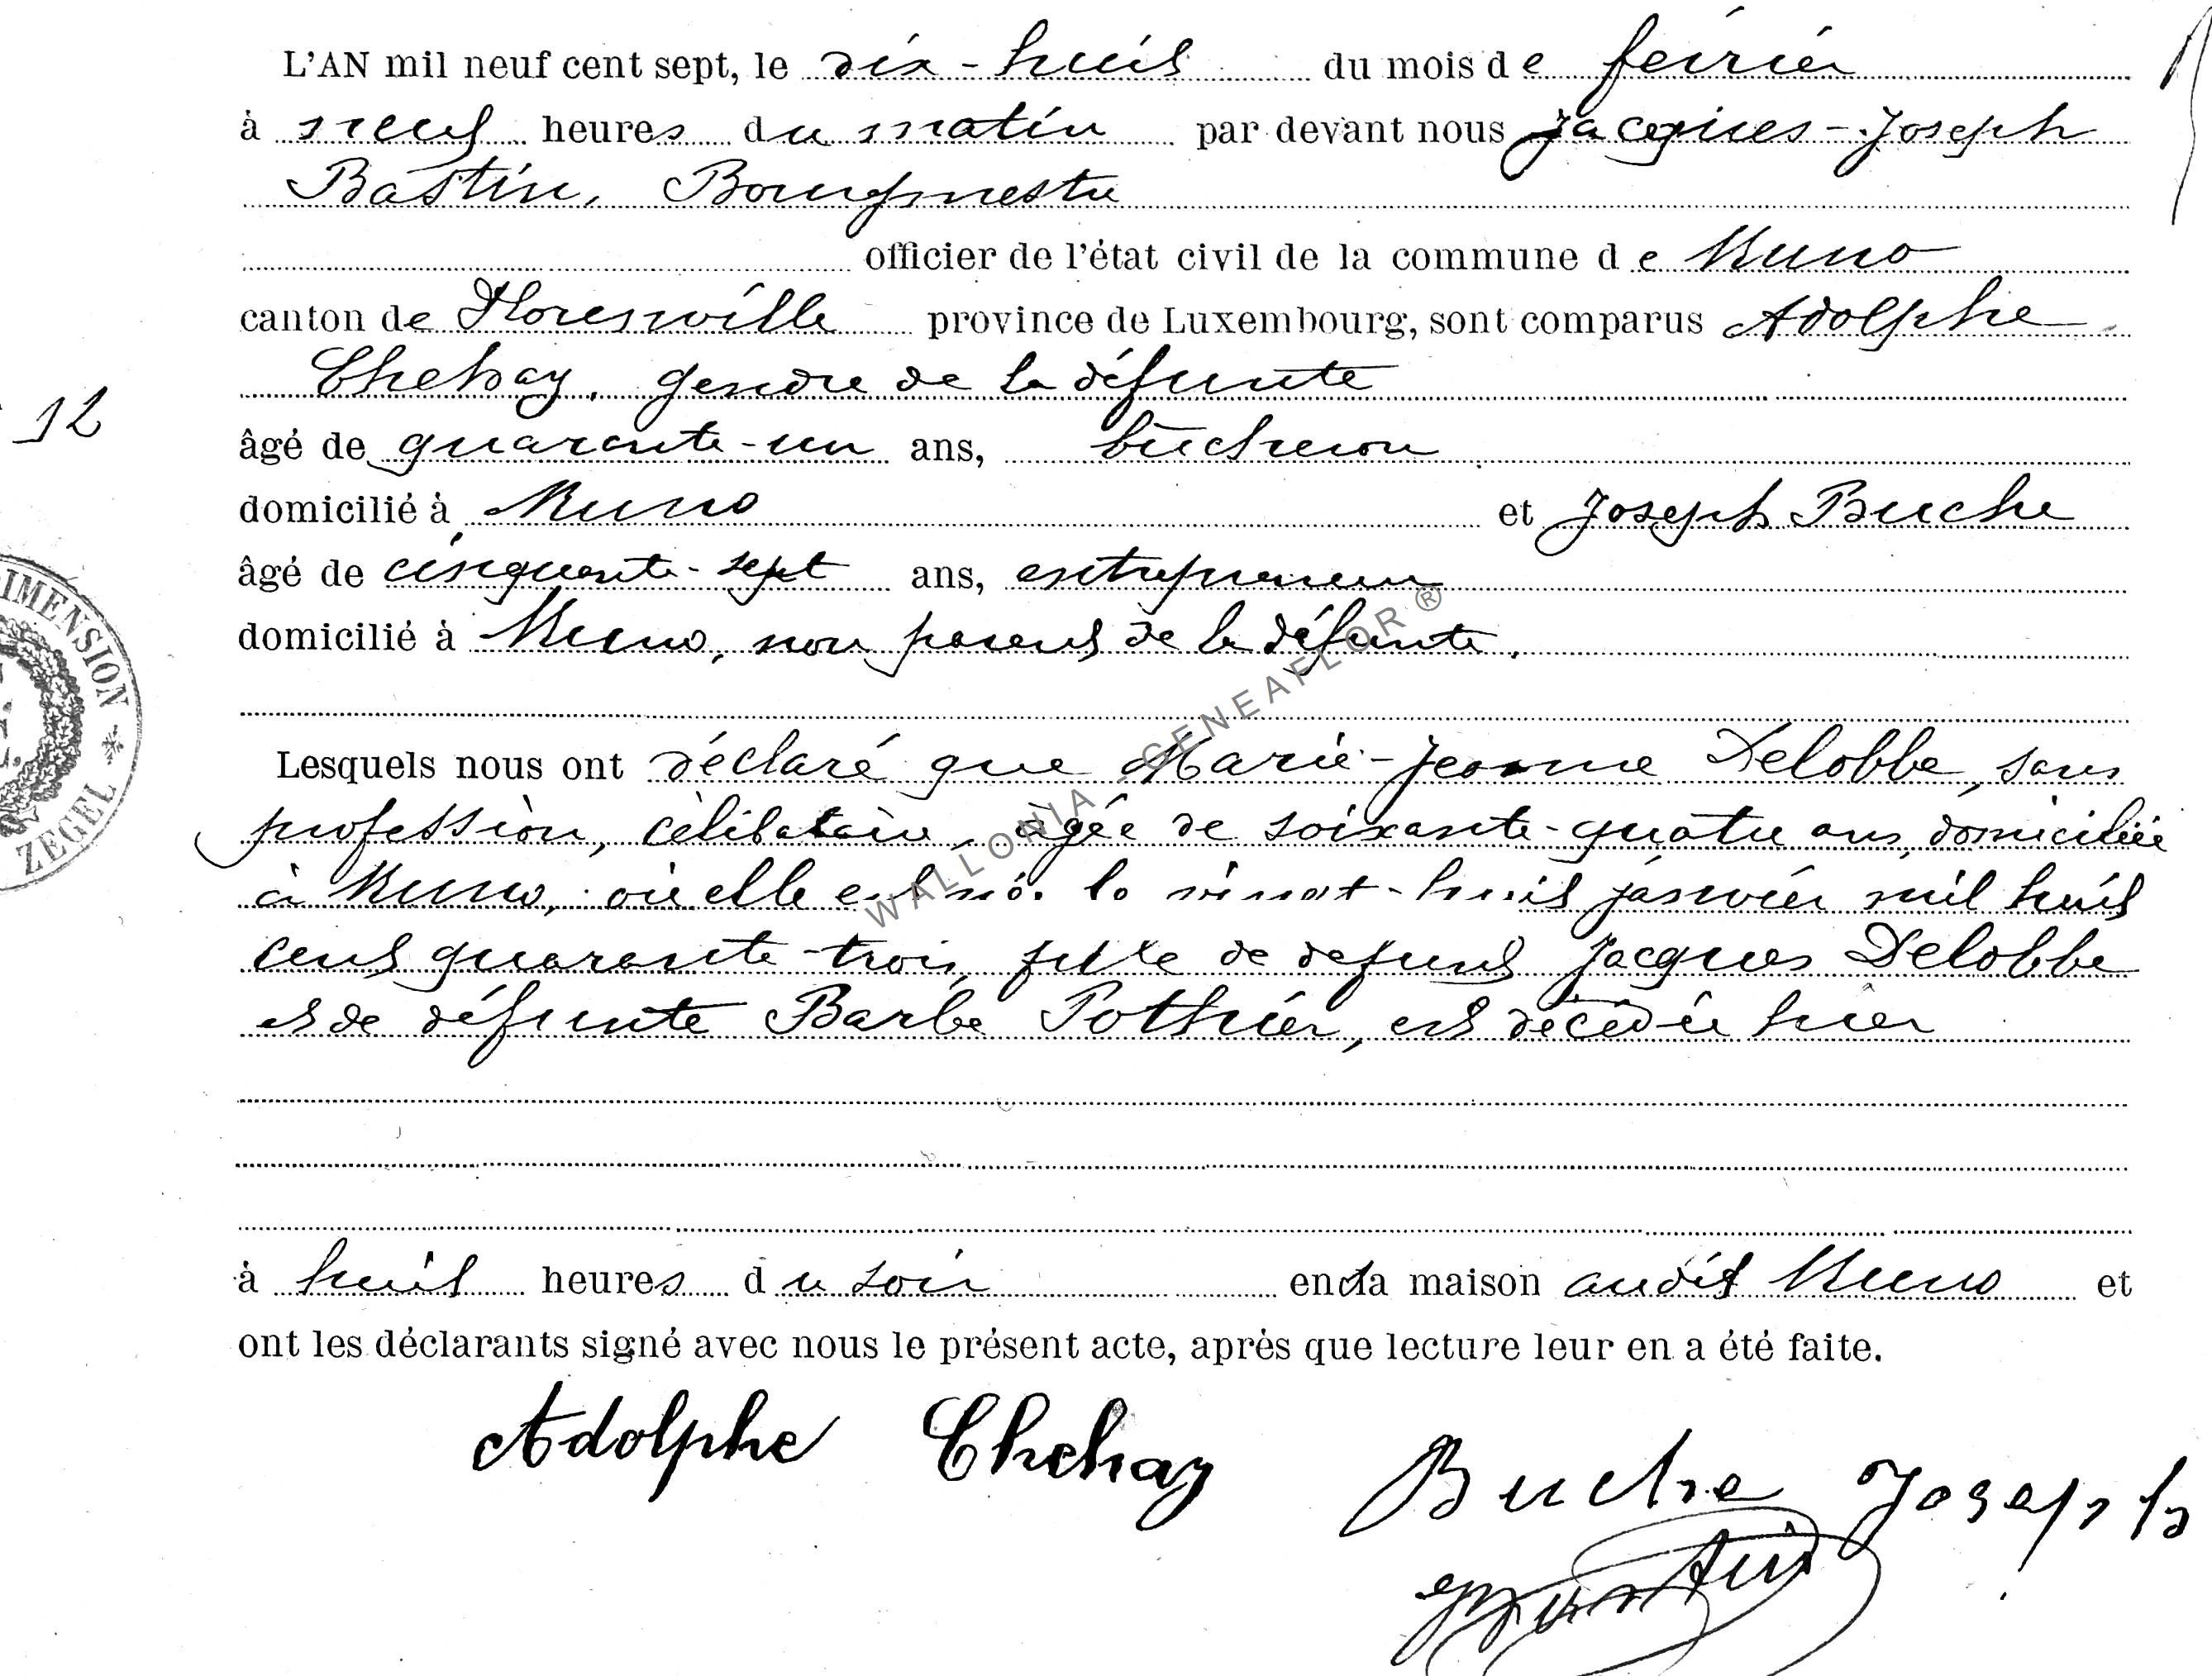 L'AN mil neuf cent sept, le dix-huit du mois de février
à neuf heures du matin par devant nous Jacques-Joseph
Bastin, Bourgmestre
officier de l'état civil de la commune de Muno
canton de Florenville province de Luxembourg, sont comparus Adolphe
Chehay, gendre de la défunte
12
âgé de quarante-un ans, bûcheron
domicilié à Muno et Joseph Buche
âgé de cinquante-sept ans, entrepreneur
domicilié à Muno, non parent de la défunte.
IMENSION * ZEGEL
WALLONIA GENEAFLOR ®
Lesquels nous ont déclaré que Marie-Jeanne Delobbe, sans
profession, célibataire, âgée de soixante-quatre ans, domiciliée
à Muno, où elle est née le vingt-huit janvier mil huit
cent quarante-trois, fille de defunt Jacques Delobbe
et de défunte Barbe Pothier, est décédée hier
à huit heures du soir en sa maison audit Muno et
ont les déclarants signé avec nous le présent acte, après que lecture leur en a été faite.
Adolphe Chehay
Buche Joseph
JJBastin